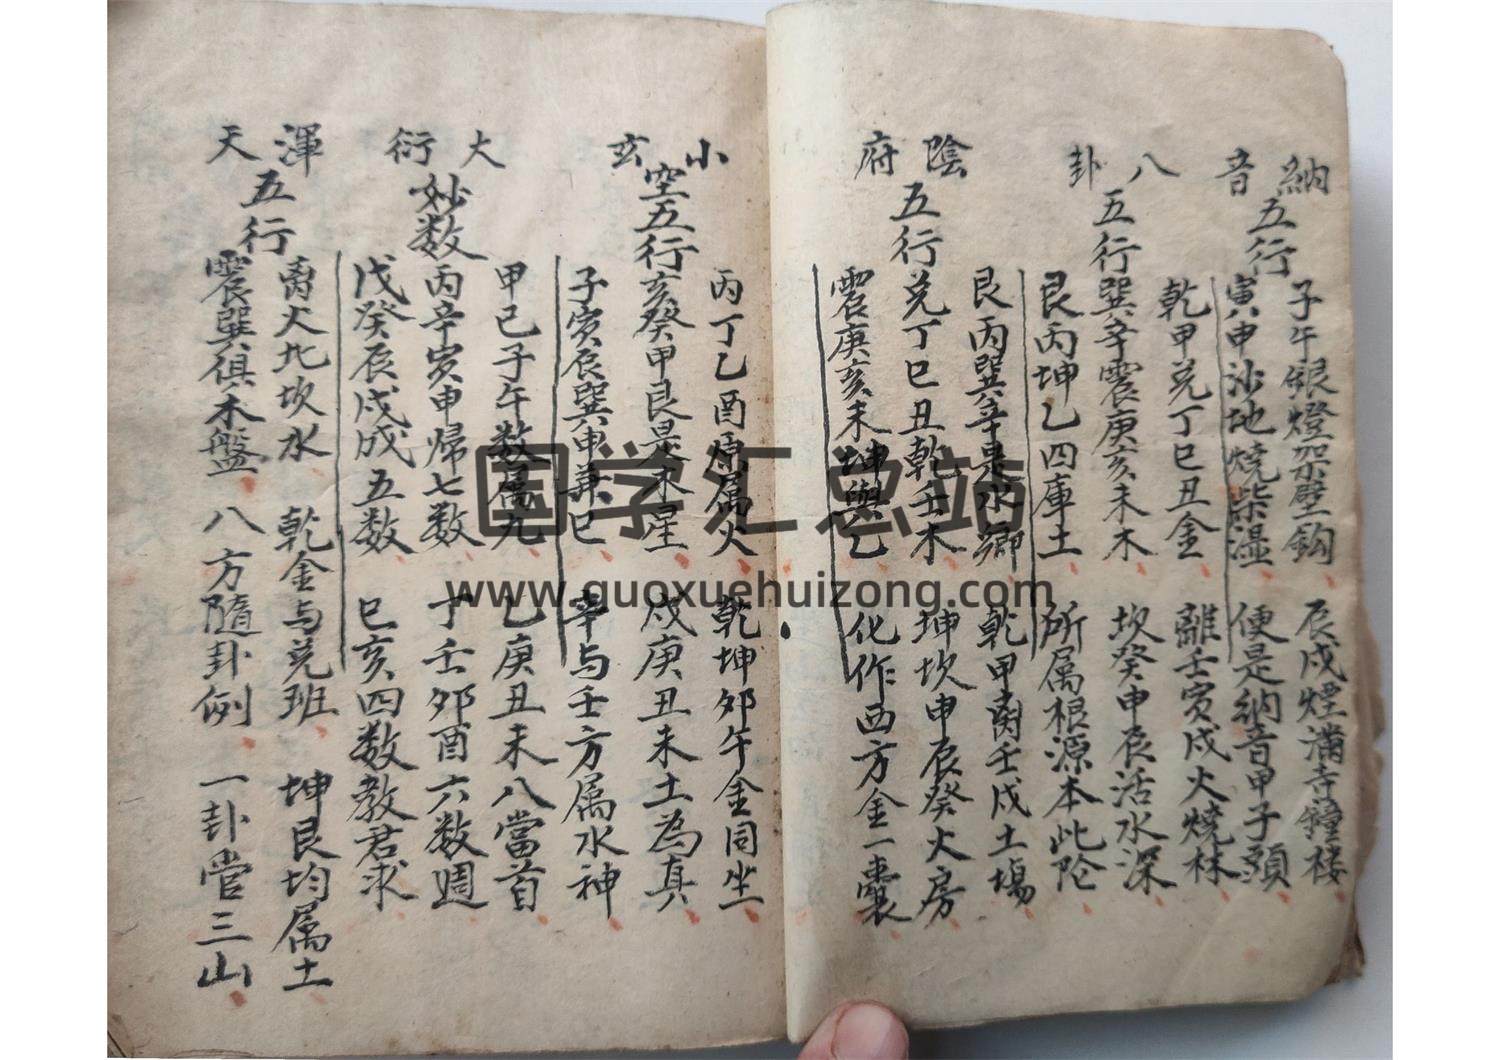 納音五行
子午銀燈架壁鈎 辰戌煙滿寺鐘楼
寅申沙地燒柴湿 便是納音甲子頭
八卦五行
乾甲兑丁巳丑金 離壬寅戌火燒林
巽辛震庚亥未木 坎癸申辰活水深
艮丙坤乙四庫土 所属根源本此陀
陰府五行
艮丙巽辛是水鄉 乾甲离壬戌土塲
兑丁巳丑乾壬木 坤坎申辰癸火房
震庚亥未坤與乙 化作西方金一囊
小玄空五行
丙丁乙酉原属火 乾坤卯午金同坐
亥癸甲艮是木星 戌庚丑未土為真
子寅辰巽申兼巳 辛与壬方属水神
大衍妙数
甲己子午数属九 乙庚丑未八當首
丙辛寅申帰七数 丁壬卯酉六数週
戊癸辰戌成五数 巳亥四数教君求
渾天五行
离火北坎水 乾金与兑班 坤艮均属土
震巽俱木盤 八方隨卦例 一卦管三山
国学汇总站
www.guoxuehuizong.com